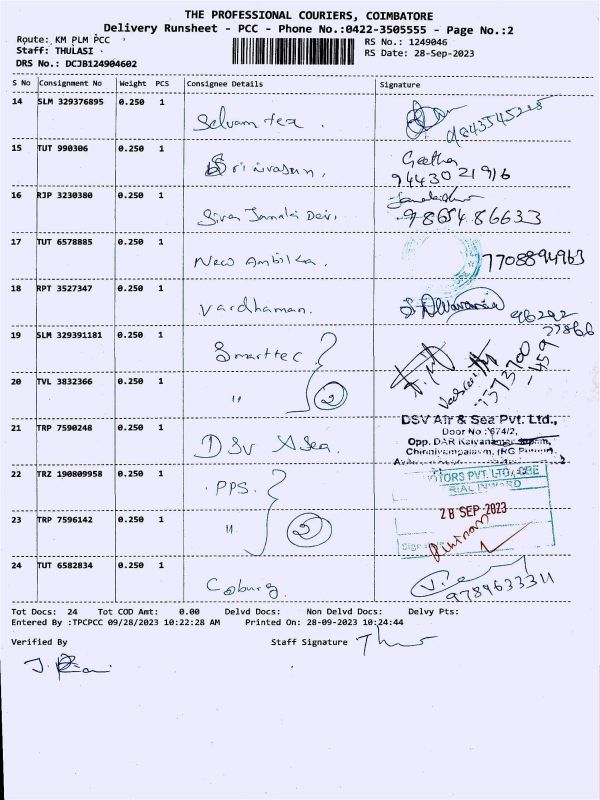 THE PROFESSIONAL COURIERS, COIMBATORE
Delivery Runsheet - PCC - Phone No.:0422-3505555 - Page No.:2
Route: KM PLM PCC
RS No.: 1249046
Staff: THULASI
RS Date: 28-Sep-2023
DRS No.: DCJB124904602
S No Consignment No Weight PCS Consignee Details Signature
14 SLM 329376895 0.250 1 Selvam tex. 9843545225
15 TUT 990306 0.250 1 Srinivasan. Geetha
9443021916
16 RJP 3230380 0.250 1 Siva Janaki Devi.
9865486633
17 TUT 6578885 0.250 1 New Ambika. 7708894963
18 RPT 3527347 0.250 1 Vardhaman.
96292
77866
19 SLM 329391181 0.250 1 Smarttec
20 TVL 3832366 0.250 1 " 2
21 TRP 7590248 0.250 1 DSV ASea. DSV Air & Sea Pvt. Ltd.,
Door No : 674/2,
Opp. DAR Kalyanamandapam,
Chinniyampalayam,
22 TRZ 190809958 0.250 1 PPS. PVT. LTD,
INWARD
28 SEP 2023
23 TRP 7596142 0.250 1 " 2
24 TUT 6582834 0.250 1 Coburg. 9789633311
Tot Docs: 24 Tot COD Amt: 0.00 Delvd Docs: Non Delvd Docs: Delvy Pts:
Entered By :TPCPCC 09/28/2023 10:22:28 AM Printed On: 28-09-2023 10:24:44
Verified By Staff Signature